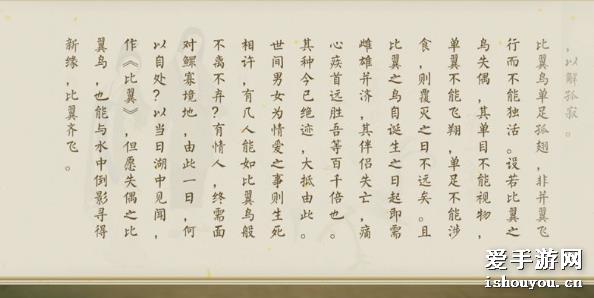 ，以解孤寂。
比翼鸟单足孤翅，非并翼飞
行而不能独活。设若比翼之
鸟失偶，其单目不能视物，
单翼不能飞翔，单足不能涉
食，则覆灭之日不远矣。且
比翼之鸟自诞生之日起即需
雌雄并济，其伴侣失亡，痛
心疾首远胜吾等百千倍也。
其种今已绝迹，大抵由此。
世间男女为情爱之事则生死
相许，有几人能如比翼鸟般
不离不弃？有情人，终需面
对鳏寡境地，由此一日，何
以自处？以当日湖中见闻，
作《比翼》，但愿失偶之比
翼鸟，也能与水中倒影寻得
新缘，比翼齐飞。
爱手游网
ishouyou.cn